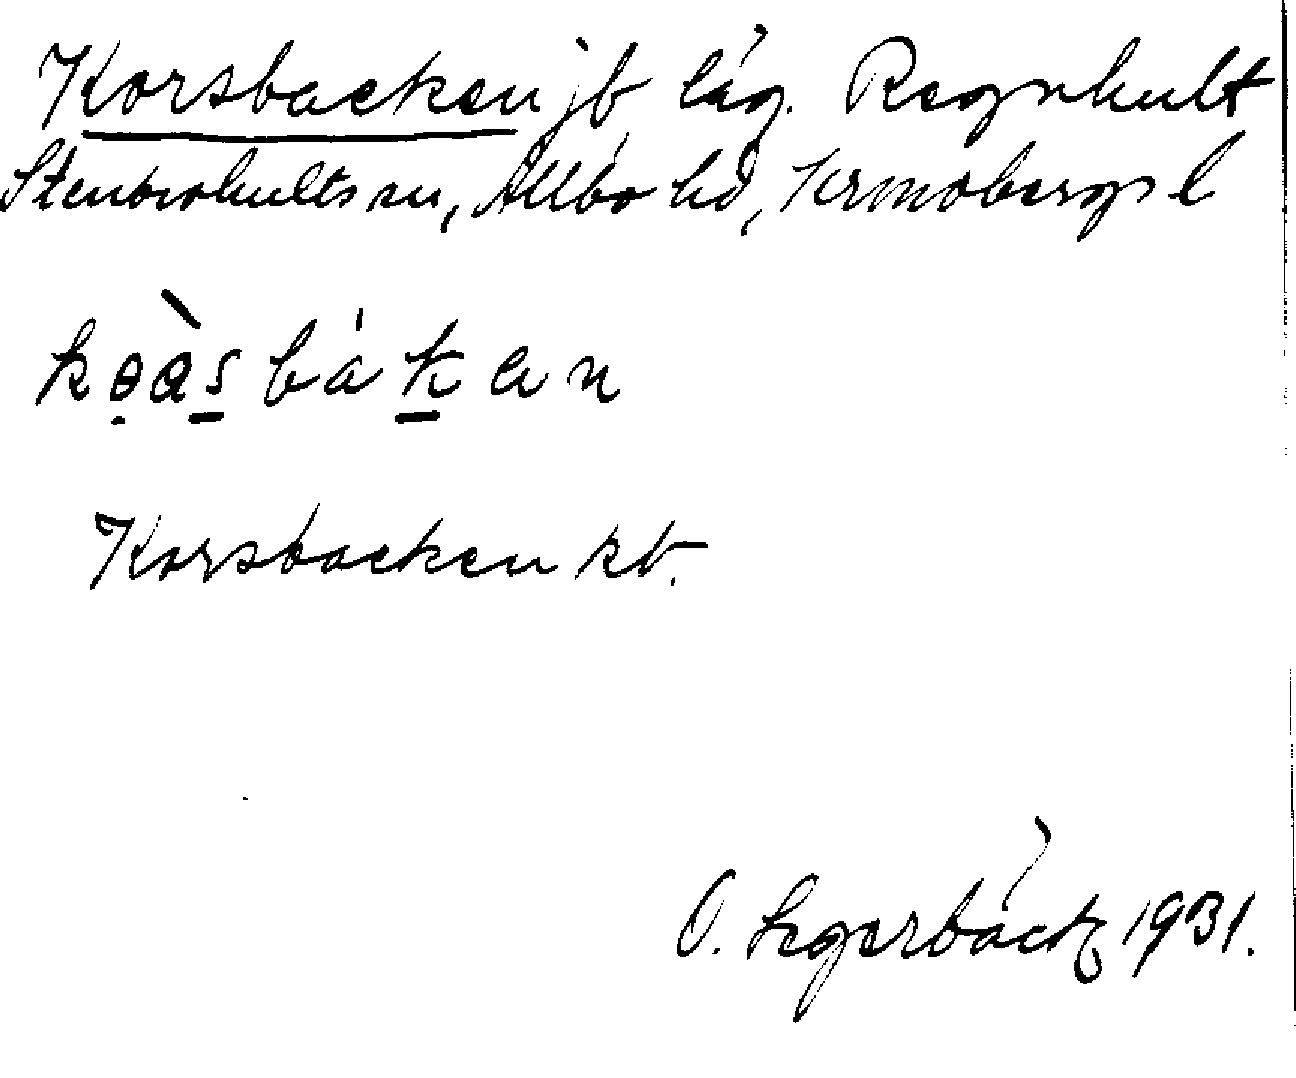 Korsbacken jb läg. Regnhult
Stenbrohults sn, Allbo hd, Kronobergs l
Korsbacken kb.
O. Segerbäck 1931.